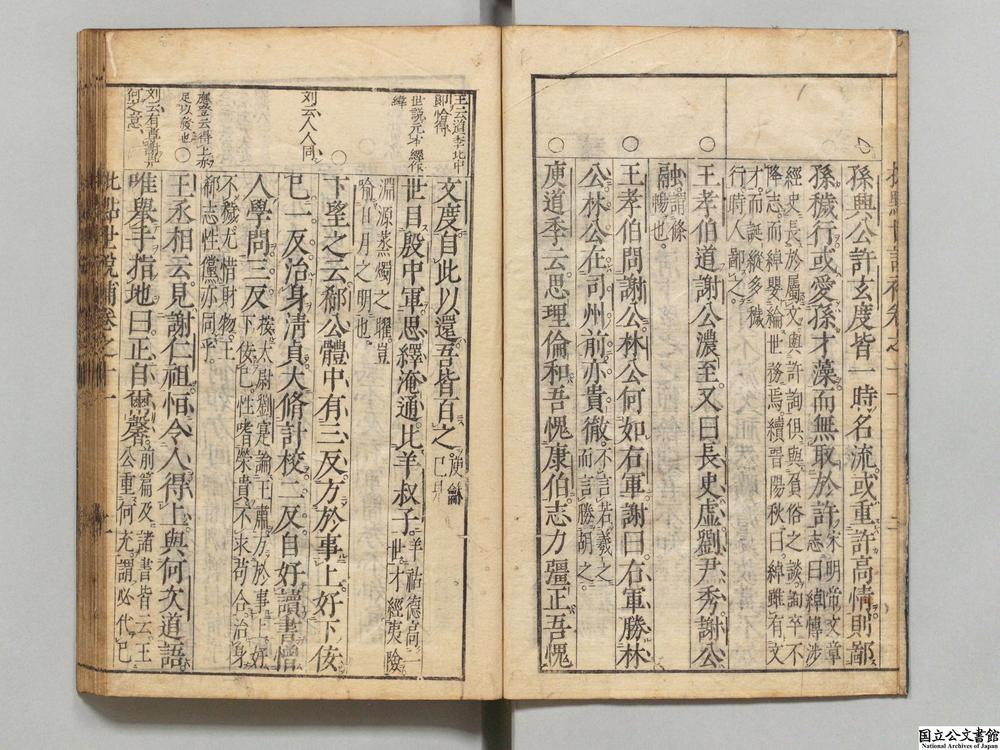 孫興公許玄度皆一時名流或重許高情則鄙
孫穢行或愛孫才藻而無取於許宋明帝文章
志曰綽博涉
經史長於屬文與許詢俱與負俗之談詢卒不
降志而綽嬰綸世務焉續晉陽秋曰綽雖有文
才而誕縱多穢
行時人鄙之
王孝伯道謝公濃至又曰長史虛劉尹秀謝公
融謂條
暢也
王孝伯問謝公林公何如右軍謝曰右軍勝林
公林公在司州前亦貴徹不言若羲之
而言勝胡之
庾道季云思理倫和吾愧康伯志力彊正吾愧
王云道季此中
世說元本繹作
緯
文度自此以還吾皆百之庾龢
已見
世目殷中軍思繹淹通比羊叔子羊祜德高一
世才經夷險
淵源蒸燭之曜豈
喻日月之明也
劉云人人同
卞望之云郗公體中有三反方於事上好下佞
己一反治身清貞大脩計校二反自好讀書憎
人學問三反按太尉劉寔論王肅方於事上好
下佞己性嗜榮貴不求苟合治身
不穢尤惜財物王
郗志性儻亦同乎
應登云得上亦
足以發也
王丞相云見謝仁祖恒令人得上與何次道語
唯舉手指地曰正自爾馨前篇及諸書皆云王
公重何充謂必代己
批點世說補卷之十一
国立公文書館
National Archives of Japan